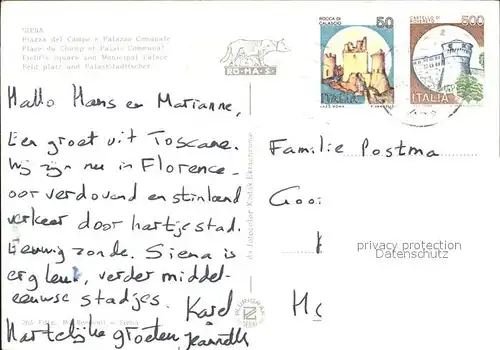 SIENA
Piazza del Campo e Palazzo Comunale
Place du Champ et Palais Communal
Field's Square and Municipal Palace
Feld platz und Palast Städtischer
RO-MA-S
ROCCA DI CALASCIO
50
ITALIA
500
ITALIA
Hallo Hans en Marianne,
Een groet uit Toscane.
Wij zijn nu in Florence.
oorverdovend en stinkend
verkeer door hartje stad.
Eeuwig zonde. Siena is
erg leuk, verder middel-
eeuwse stadjes.
Karel
Hartelijke groeten, Jeannette
Familie Postma
Gooi
Mc
privacy protection
Datenschutz
da fotocolor Kodak Ektachrome
PLURIGRAF